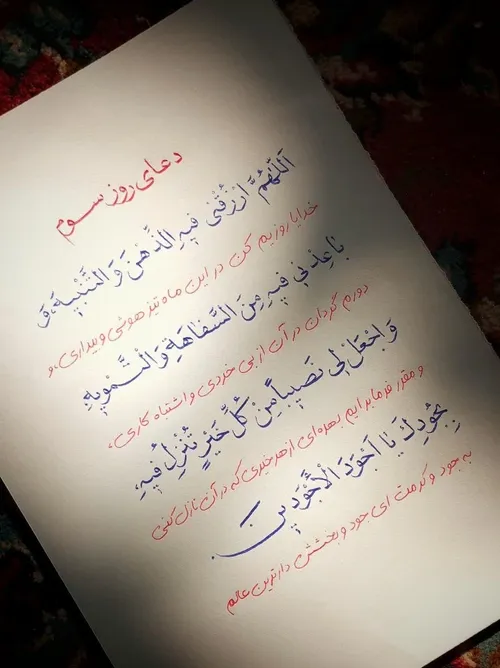 دعای روز سوم
اَللّهُمَّ ارْزُقْنی فیهِ الذِّهْنَ وَ التَّنْبیهَ، وَ
خدایا روزیم کن در این ماه تیز هوشی و بیداری، و
باعِدْنی فیهِ مِنَ السَّفاهَةِ وَ التَّمْویهِ،
دورم گردان در آن از بی خردی و اشتباه کاری،
وَ اجْعَلْ لی نَصیباً مِنْ کُلِّ خَیْرٍ تُنْزِلُ فیهِ،
و مقرر فرما برایم بهره‌ای از هر خیری که در آن نازل کنی
بِجُودِكَ یا اَجْوَدَ الْاَجْوَدینَ.
به جود و کرمت ای جود و بخشش دارترین عالم